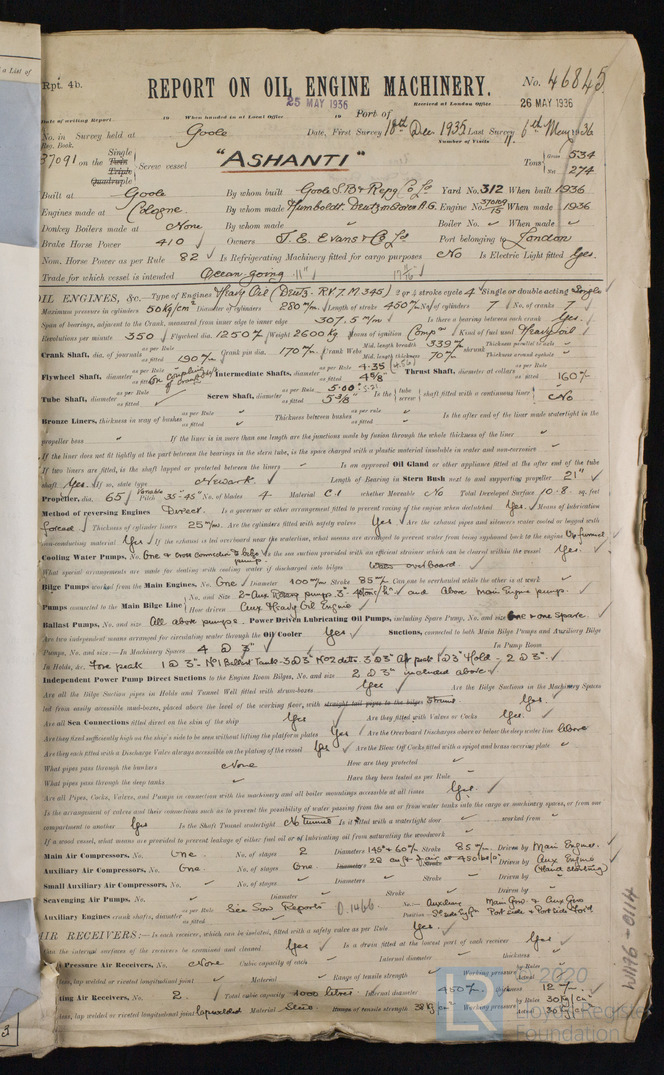 a List of
Rpt. 4b.
REPORT ON OIL ENGINE MACHINERY.
No. 46845
25 MAY 1936
Received at London Office 26 MAY 1936
Date of writing Report 19 When handed in at Local Office 19 Port of
No. in Reg. Book. Survey held at Goole Date, First Survey 18th Dec 1935 Last Survey 6th May 1936
Number of Visits
37091 on the Single Twin Triple Quadruple Screw vessel "ASHANTI" Tons Gross 534 Net 274
Built at Goole By whom built Goole S.B. & Repg Co Ld Yard No. 312 When built 1936
Engines made at Cologne By whom made Humboldt-Deutzmotoren A.G. Engine No. When made 1936
Donkey Boilers made at None By whom made Boiler No. When made
Brake Horse Power 410 Owners T. E. Evans & Co Ld Port belonging to London
Nom. Horse Power as per Rule 82 Is Refrigerating Machinery fitted for cargo purposes No Is Electric Light fitted Yes.
Trade for which vessel is intended Ocean going
OIL ENGINES, &c. Type of Engines Heavy Oil (Deutz RV7.M.345) 2 or 4 stroke cycle 4 Single or double acting Single
Maximum pressure in cylinders 50 Kg/cm² Diameter of cylinders 280 m/m Length of stroke 450 m/m No. of cylinders 7 No. of cranks 7
Span of bearings, adjacent to the Crank, measured from inner edge to inner edge 307.5 m/m Is there a bearing between each crank Yes.
Revolutions per minute 350 Flywheel dia. 1250 m/m Weight 2600 Kg Means of ignition Compn Kind of fuel used Heavy oil
Crank Shaft, dia. of journals as per Rule as fitted 190 m/m Crank pin dia. 170 m/m Crank Webs Mid. length breadth 339 m/m Mid. length thickness 70 m/m shrunk Thickness parallel to axle Thickness around eyehole
Flywheel Shaft, diameter as per Rule as fitted Intermediate Shafts, diameter as per Rule 4.35 as fitted 4 5/8" Thrust Shaft, diameter at collars as per Rule as fitted 160 m/m
Tube Shaft, diameter as per Rule as fitted Screw Shaft, diameter as per Rule 5.00 as fitted 5 3/8" Is the tube screw shaft fitted with a continuous liner No
Bronze Liners, thickness in way of bushes as per Rule as fitted Thickness between bushes as per rule as fitted Is the after end of the liner made watertight in the
propeller boss If the liner is in more than one length are the junctions made by fusion through the whole thickness of the liner
If the liner does not fit tightly at the part between the bearings in the stern tube, is the space charged with a plastic material insoluble in water and non-corrosive
If two liners are fitted, is the shaft lapped or protected between the liners Is an approved Oil Gland or other appliance fitted at the after end of the tube
shaft Yes. If so, state type Newark. Length of Bearing in Stern Bush next to and supporting propeller 21"
Propeller, dia. 65 Pitch Variable 35-45" No. of blades 4 Material C.I whether Moveable No Total Developed Surface 10.8 sq. feet
Method of reversing Engines Direct. Is a governor or other arrangement fitted to prevent racing of the engine when declutched Yes. Means of lubrication
forced Thickness of cylinder liners 25 m/m. Are the cylinders fitted with safety valves Yes Are the exhaust pipes and silencers water cooled or lagged with
non-conducting material Yes If the exhaust is led overboard near the waterline, what means are arranged to prevent water from being syphoned back to the engine Up funnel
Cooling Water Pumps, No. One & cross connection to bilge pump. Is the sea suction provided with an efficient strainer which can be cleared within the vessel Yes.
What special arrangements are made for dealing with cooling water if discharged into bilges overboard
Bilge Pumps worked from the Main Engines, No. One Diameter 100 m/m Stroke 85 m/m Can one be overhauled while the other is at work
Pumps connected to the Main Bilge Line No. and Size 2-Aux Rotary pumps 3" and Above Main Engine pump. How driven Aux Heavy Oil Engine
Ballast Pumps, No. and size All above pumps. Power Driven Lubricating Oil Pumps, including Spare Pump, No. and size One & one spare.
Are two independent means arranged for circulating water through the Oil Cooler Yes Suctions, connected to both Main Bilge Pumps and Auxiliary Bilge
Pumps, No. and size:—In Machinery Spaces 4 @ 3" In Pump Room
In Holds, &c. Fore peak 1 @ 3" No 1 Ballast Tank 3 @ 3" No 2 ditto 3 @ 3" Aft peak 1 @ 3" Hold - 2 @ 3".
Independent Power Pump Direct Suctions to the Engine Room Bilges, No. and size 2 @ 3" included above.
Are all the Bilge Suction pipes in Holds and Tunnel Well fitted with strum-boxes Yes Are the Bilge Suctions in the Machinery Spaces
led from easily accessible mud-boxes, placed above the level of the working floor, with straight tail pipes to the bilges Strums Yes.
Are all Sea Connections fitted direct on the skin of the ship Yes Are they fitted with Valves or Cocks Yes.
Are they fixed sufficiently high on the ship's side to be seen without lifting the platform plates Yes Are the Overboard Discharges above or below the deep water line Above
Are they each fitted with a Discharge Valve always accessible on the plating of the vessel Yes Are the Blow Off Cocks fitted with a spigot and brass covering plate
What pipes pass through the bunkers None How are they protected
What pipes pass through the deep tanks Have they been tested as per Rule
Are all Pipes, Cocks, Valves, and Pumps in connection with the machinery and all boiler mountings accessible at all times Yes.
Is the arrangement of valves and their connections such as to prevent the possibility of water passing from the sea or from water tanks into the cargo or machinery spaces, or from one
compartment to another Yes Is the Shaft Tunnel watertight No Tunnel Is it fitted with a watertight door worked from
If a wood vessel, what means are provided to prevent leakage of either fuel oil or of lubricating oil from saturating the woodwork
Main Air Compressors, No. One. No. of stages 2 Diameters 145 & 60 m/m Stroke 85 m/m. Driven by Main Engine.
Auxiliary Air Compressors, No. One. No. of stages One. Diameters Stroke Driven by Aux Engine (Hand starting)
Small Auxiliary Air Compressors, No. No. of stages Diameters Stroke Driven by
Scavenging Air Pumps, No. Diameter Stroke Driven by
Auxiliary Engines crank shafts, diameter as per Rule as fitted See Sow. Reports 0.1466 No. Auxiliary Main Gen. & Aux Gen Position
AIR RECEIVERS:—Is each receiver, which can be isolated, fitted with a safety valve as per Rule Yes.
Can the internal surfaces of the receivers be examined and cleaned Yes Is a drain fitted at the lowest part of each receiver Yes
Pressure Air Receivers, No. None Cubic capacity of each Internal diameter thickness
lap welded or riveted longitudinal joint Material Range of tensile strength Working pressure by Rules
ting Air Receivers, No. 2. Total cubic capacity 1000 litres Internal diameter 450 m/m thickness 12 m/m.
lap welded or riveted longitudinal joint lap welded Material Steel Range of tensile strength Working pressure by Rules 30 Kg/cm² Actual 30 Kg/cm²
© 2020
LR
Lloyd's Register
Foundation
W1196-0114
3